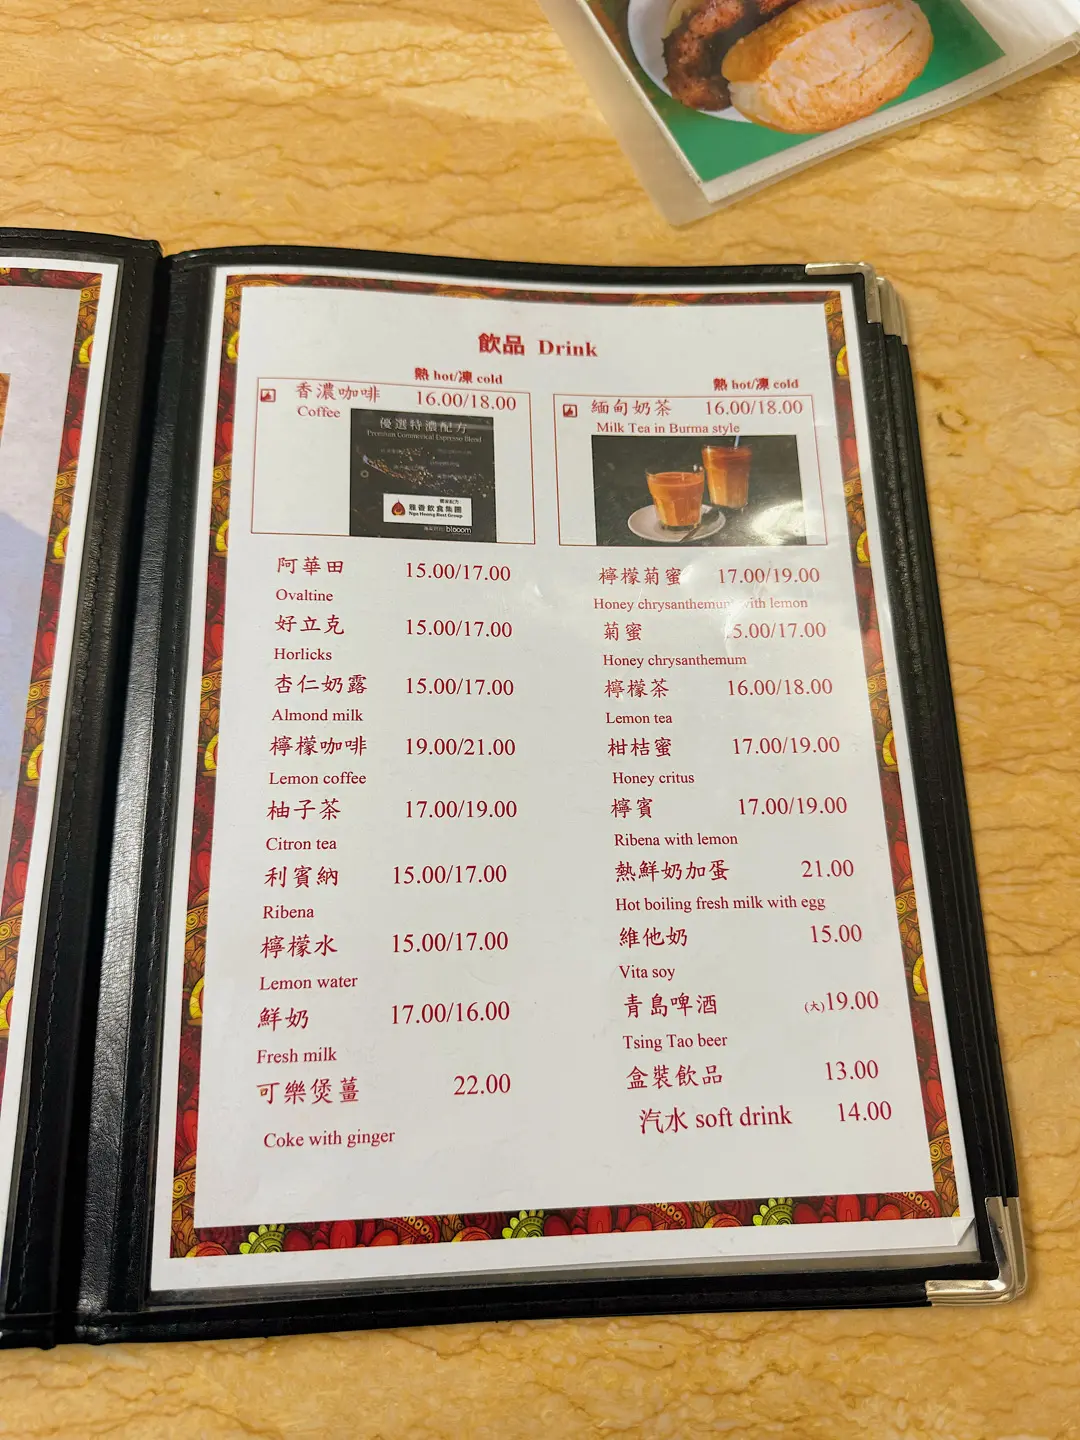 飲品 Drink
熱 hot/凍 cold
香濃咖啡 16.00/18.00
Coffee
優選特濃配方
Premium Commerical Espresso Blend
獨家配方
雅香飲食集團
Nga Heung Best Group
blooom
阿華田 15.00/17.00
Ovaltine
好立克 15.00/17.00
Horlicks
杏仁奶露 15.00/17.00
Almond milk
檸檬咖啡 19.00/21.00
Lemon coffee
柚子茶 17.00/19.00
Citron tea
利賓納 15.00/17.00
Ribena
檸檬水 15.00/17.00
Lemon water
鮮奶 17.00/16.00
Fresh milk
可樂煲薑 22.00
Coke with ginger
熱 hot/凍 cold
緬甸奶茶 16.00/18.00
Milk Tea in Burma style
檸檬菊蜜 17.00/19.00
Honey chrysanthemum with lemon
菊蜜 5.00/17.00
Honey chrysanthemum
檸檬茶 16.00/18.00
Lemon tea
柑桔蜜 17.00/19.00
Honey critus
檸賓 17.00/19.00
Ribena with lemon
熱鮮奶加蛋 21.00
Hot boiling fresh milk with egg
維他奶 15.00
Vita soy
青島啤酒 (大)19.00
Tsing Tao beer
盒裝飲品 13.00
汽水 soft drink 14.00